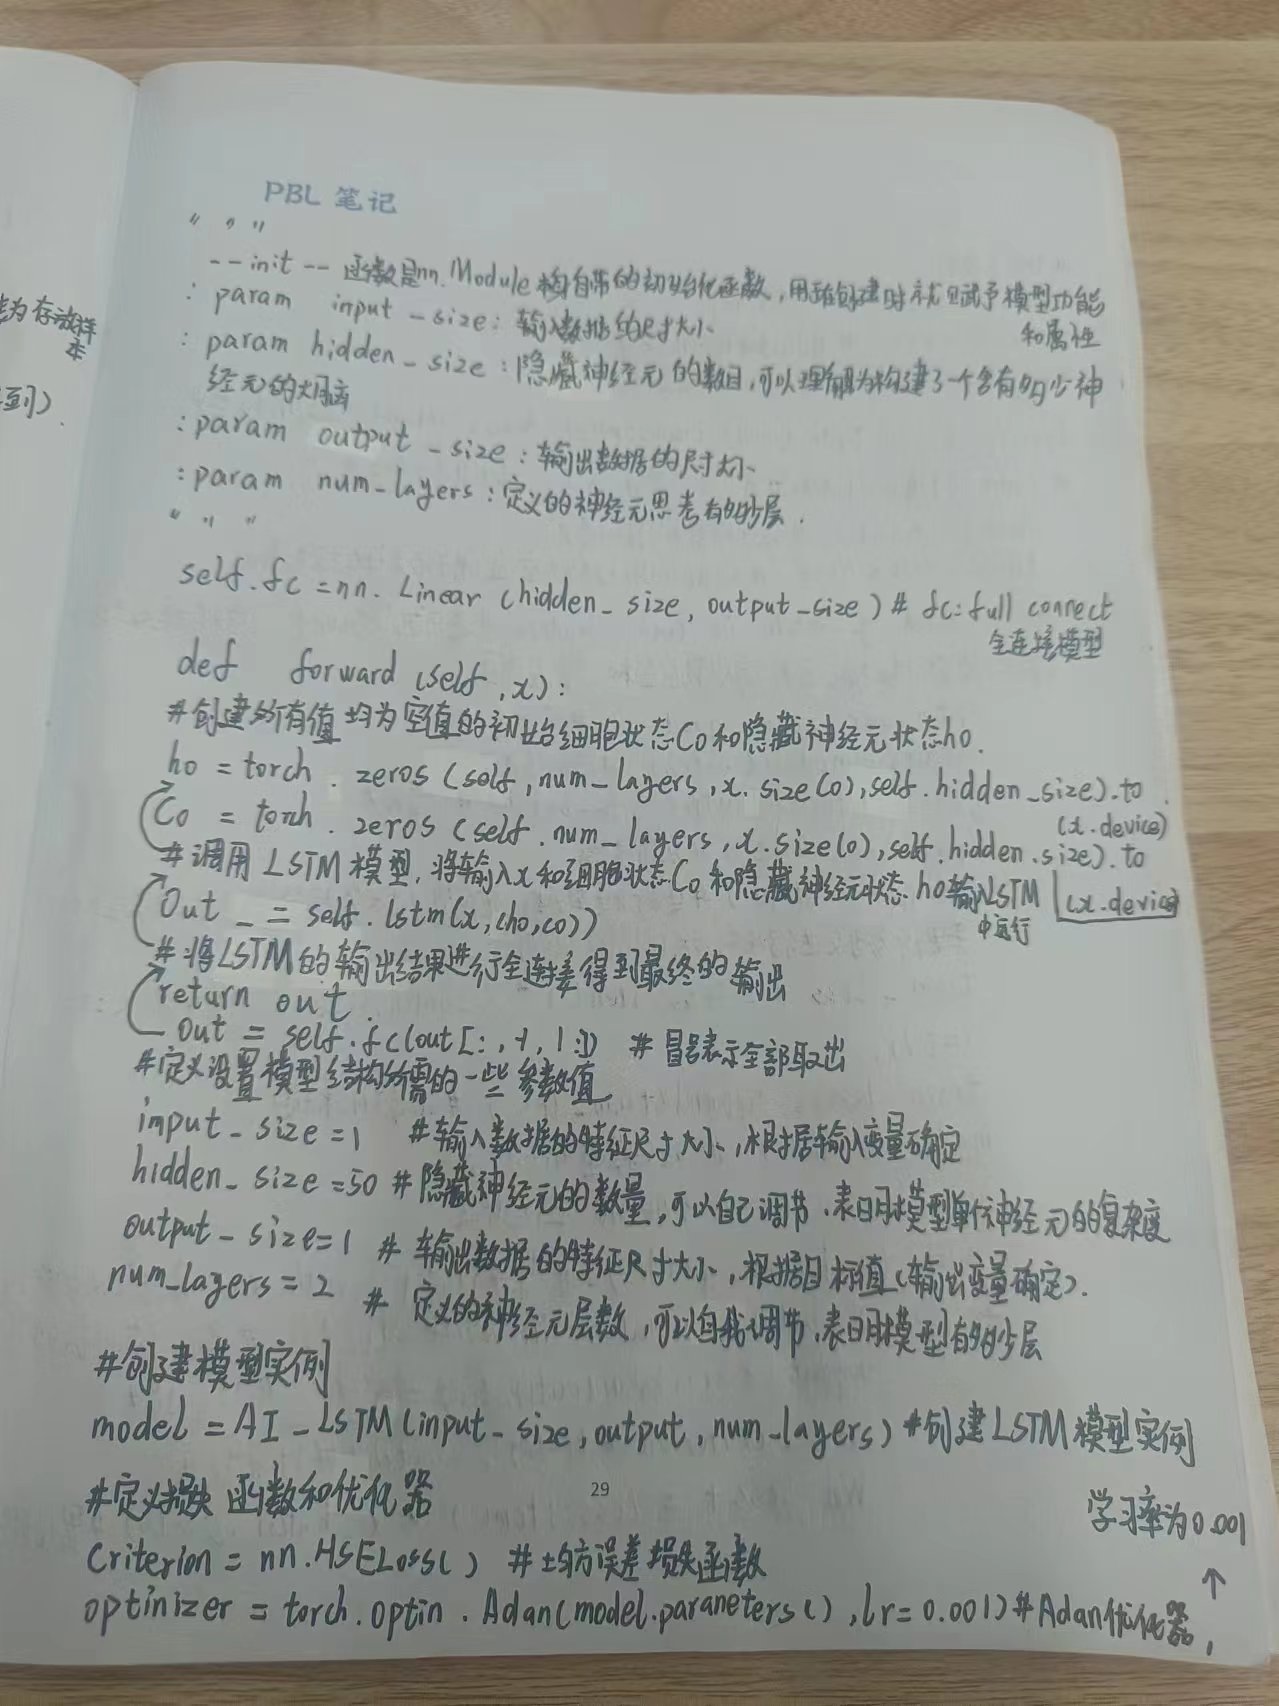 PBL 笔记
" " "
--init-- 函数是nn.Module自带的初始化函数,用于在创建时就赋予模型功能
和属性
: param input_size: 输入数据的尺寸大小
: param hidden_size: 隐藏神经元的数目,可以理解为构建了一个含有多少神
经元的大脑
: param output_size: 输出数据的尺寸大小
: param num_layers: 定义的神经元思考有多少层.
" " "
self.fc = nn.Linear (hidden_size, output_size) # fc: full connect
全连接模型
def forward (self, x):
#创建所有值均为空值的初始细胞状态C0和隐藏神经元状态h0.
h0 = torch.zeros (self, num_layers, x.size(0), self.hidden_size).to
(x.device)
C0 = torch.zeros (self.num_layers, x.size(0), self.hidden.size).to
(x.device)
#调用LSTM模型,将输入x和细胞状态C0和隐藏神经元状态h0输入LSTM
中运行
Out _ = self.lstm(x, (h0, c0))
#将LSTM的输出结果进行全连接得到最终的输出
return out.
out = self.fc(out[:, -1, 1:]) # 冒号表示全部取出
#定义设置模型结构所需的一些参数值
input_size = 1 #输入数据的特征尺寸大小,根据输入变量确定
hidden_size = 50 #隐藏神经元的数量,可以自己调节,表明模型单位神经元的复杂度
output_size = 1 # 输出数据的特征尺寸大小,根据目标值(输出变量确定).
num_layers = 2 # 定义的神经元层数,可以自我调节,表明模型有多少层
#创建模型实例
model = AI_LSTM(input_size, output, num_layers) #创建LSTM模型实例
#定义损失函数和优化器
学习率为0.001
Criterion = nn.MSELoss() #均方误差损失函数
optinizer = torch.optin.Adan(model.paraneters(), lr=0.001) #Adan优化器,
29
为存放样
本
到).